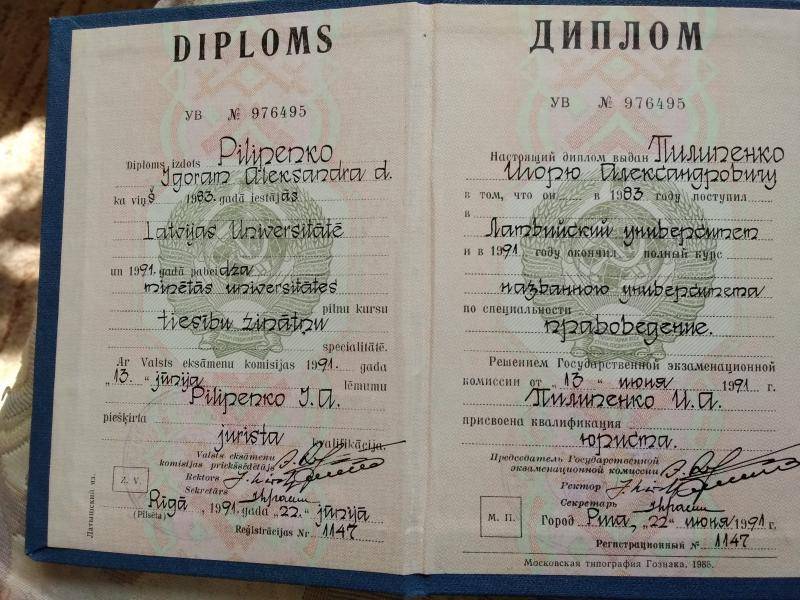 DIPLOMS
УВ № 976495
Diploms izdots Pilipenko
Igoram Aleksandra d.
ka viņš 1983. gadā iestājās
Latvijas Universitātē
un 1991. gadā pabeidza
minētās universitātes
pilnu kursu
tiesību zinātņu
specialitātē.
Ar Valsts eksāmenu komisijas 1991. gada
„13." jūnija lēmumu
Pilipenko I.A.
piešķirta
jurista kvalifikācija.
Valsts eksāmenu
komisijas priekšsēdētājs
Rektors
Sekretārs
Z. V.
Rīgā, 1991. gada „22." jūnijā
(Pilsēta)
Reģistrācijas Nr 1147
Латышский яз.
ДИПЛОМ
УВ № 976495
Настоящий диплом выдан Пилипенко
Игорю Александровичу
в том, что он в 1983 году поступил
в
Латвийский университет
и в 1991 году окончил полный курс
названного университета
по специальности
правоведение.
Решением Государственной экзаменационной
комиссии от „13" июня 1991 г.
Пилипенко И.А.
присвоена квалификация
юриста.
Председатель Государственной
экзаменационной комиссии
Ректор
Секретарь
М. П.
Город Рига, „22" июня 1991 г.
Регистрационный № 1147
Московская типография Гознака. 1986.